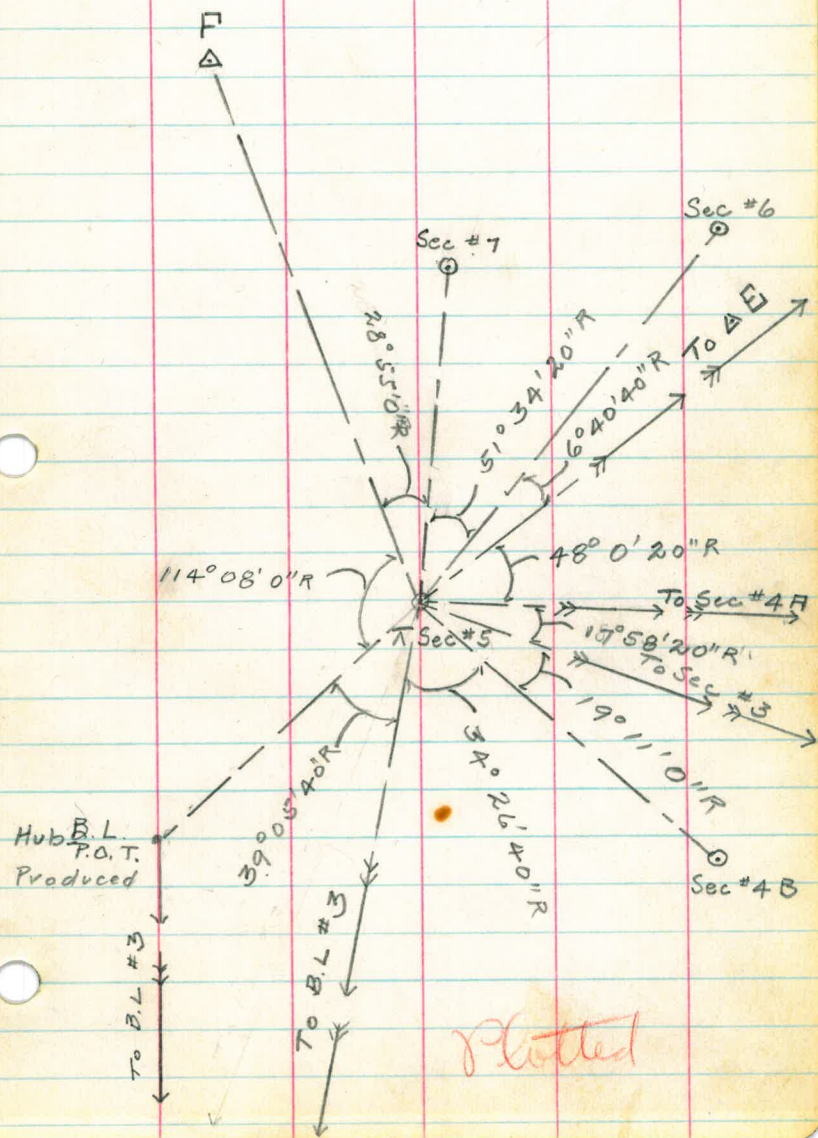 F
Sec #6
Sec #7
To △ E
28°55'0"R
51°34'20"R
6°40'40"R
48°0'20"R
114°08'0"R
To Sec #4A
⊼ Sec #5
17°58'20"R
To Sec #3
19°11'0"R
34°26'40"R
39°05'40"R
Hub B.L.
P.O.T.
Produced
Sec #4B
To B.L #3
To B.L #3
Plotted